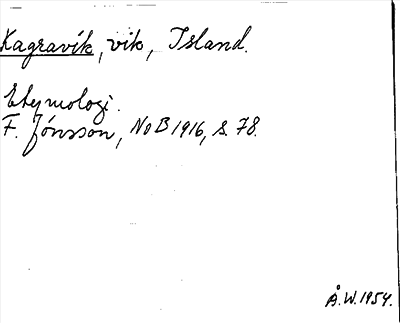 Kagravík, vik, Island.
Etymologi.
F. Jónsson, NoB 1916, s. 78.
Å.W. 1954.